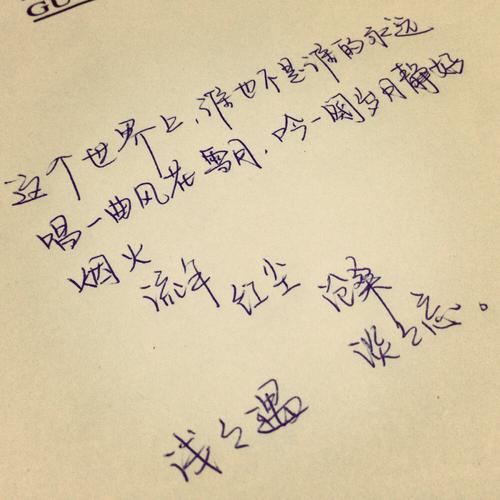 GU
这个世界上,谁也不是谁的永远
唱一曲风花雪月,吟一阕岁月静好
烟火 流年 红尘 沧桑
浅々遇 淡々忘。